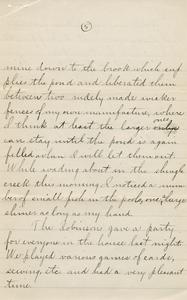 (5)
mine down to the brook which sup
plies the pond and liberated them
between two rudely made wicker
fences of my own manufacture, where
I think at least the larger ones
can stay until the pond is again
filled when I will let them out.
While wading about in the
creek this morning I noticed a num
ber of small fish in the pools, one large
shiner as long as my hand.
The Robinsons gave a party
for everyone in the house last night.
We played various games of cards,
sewing, etc and had a very pleasant
time.